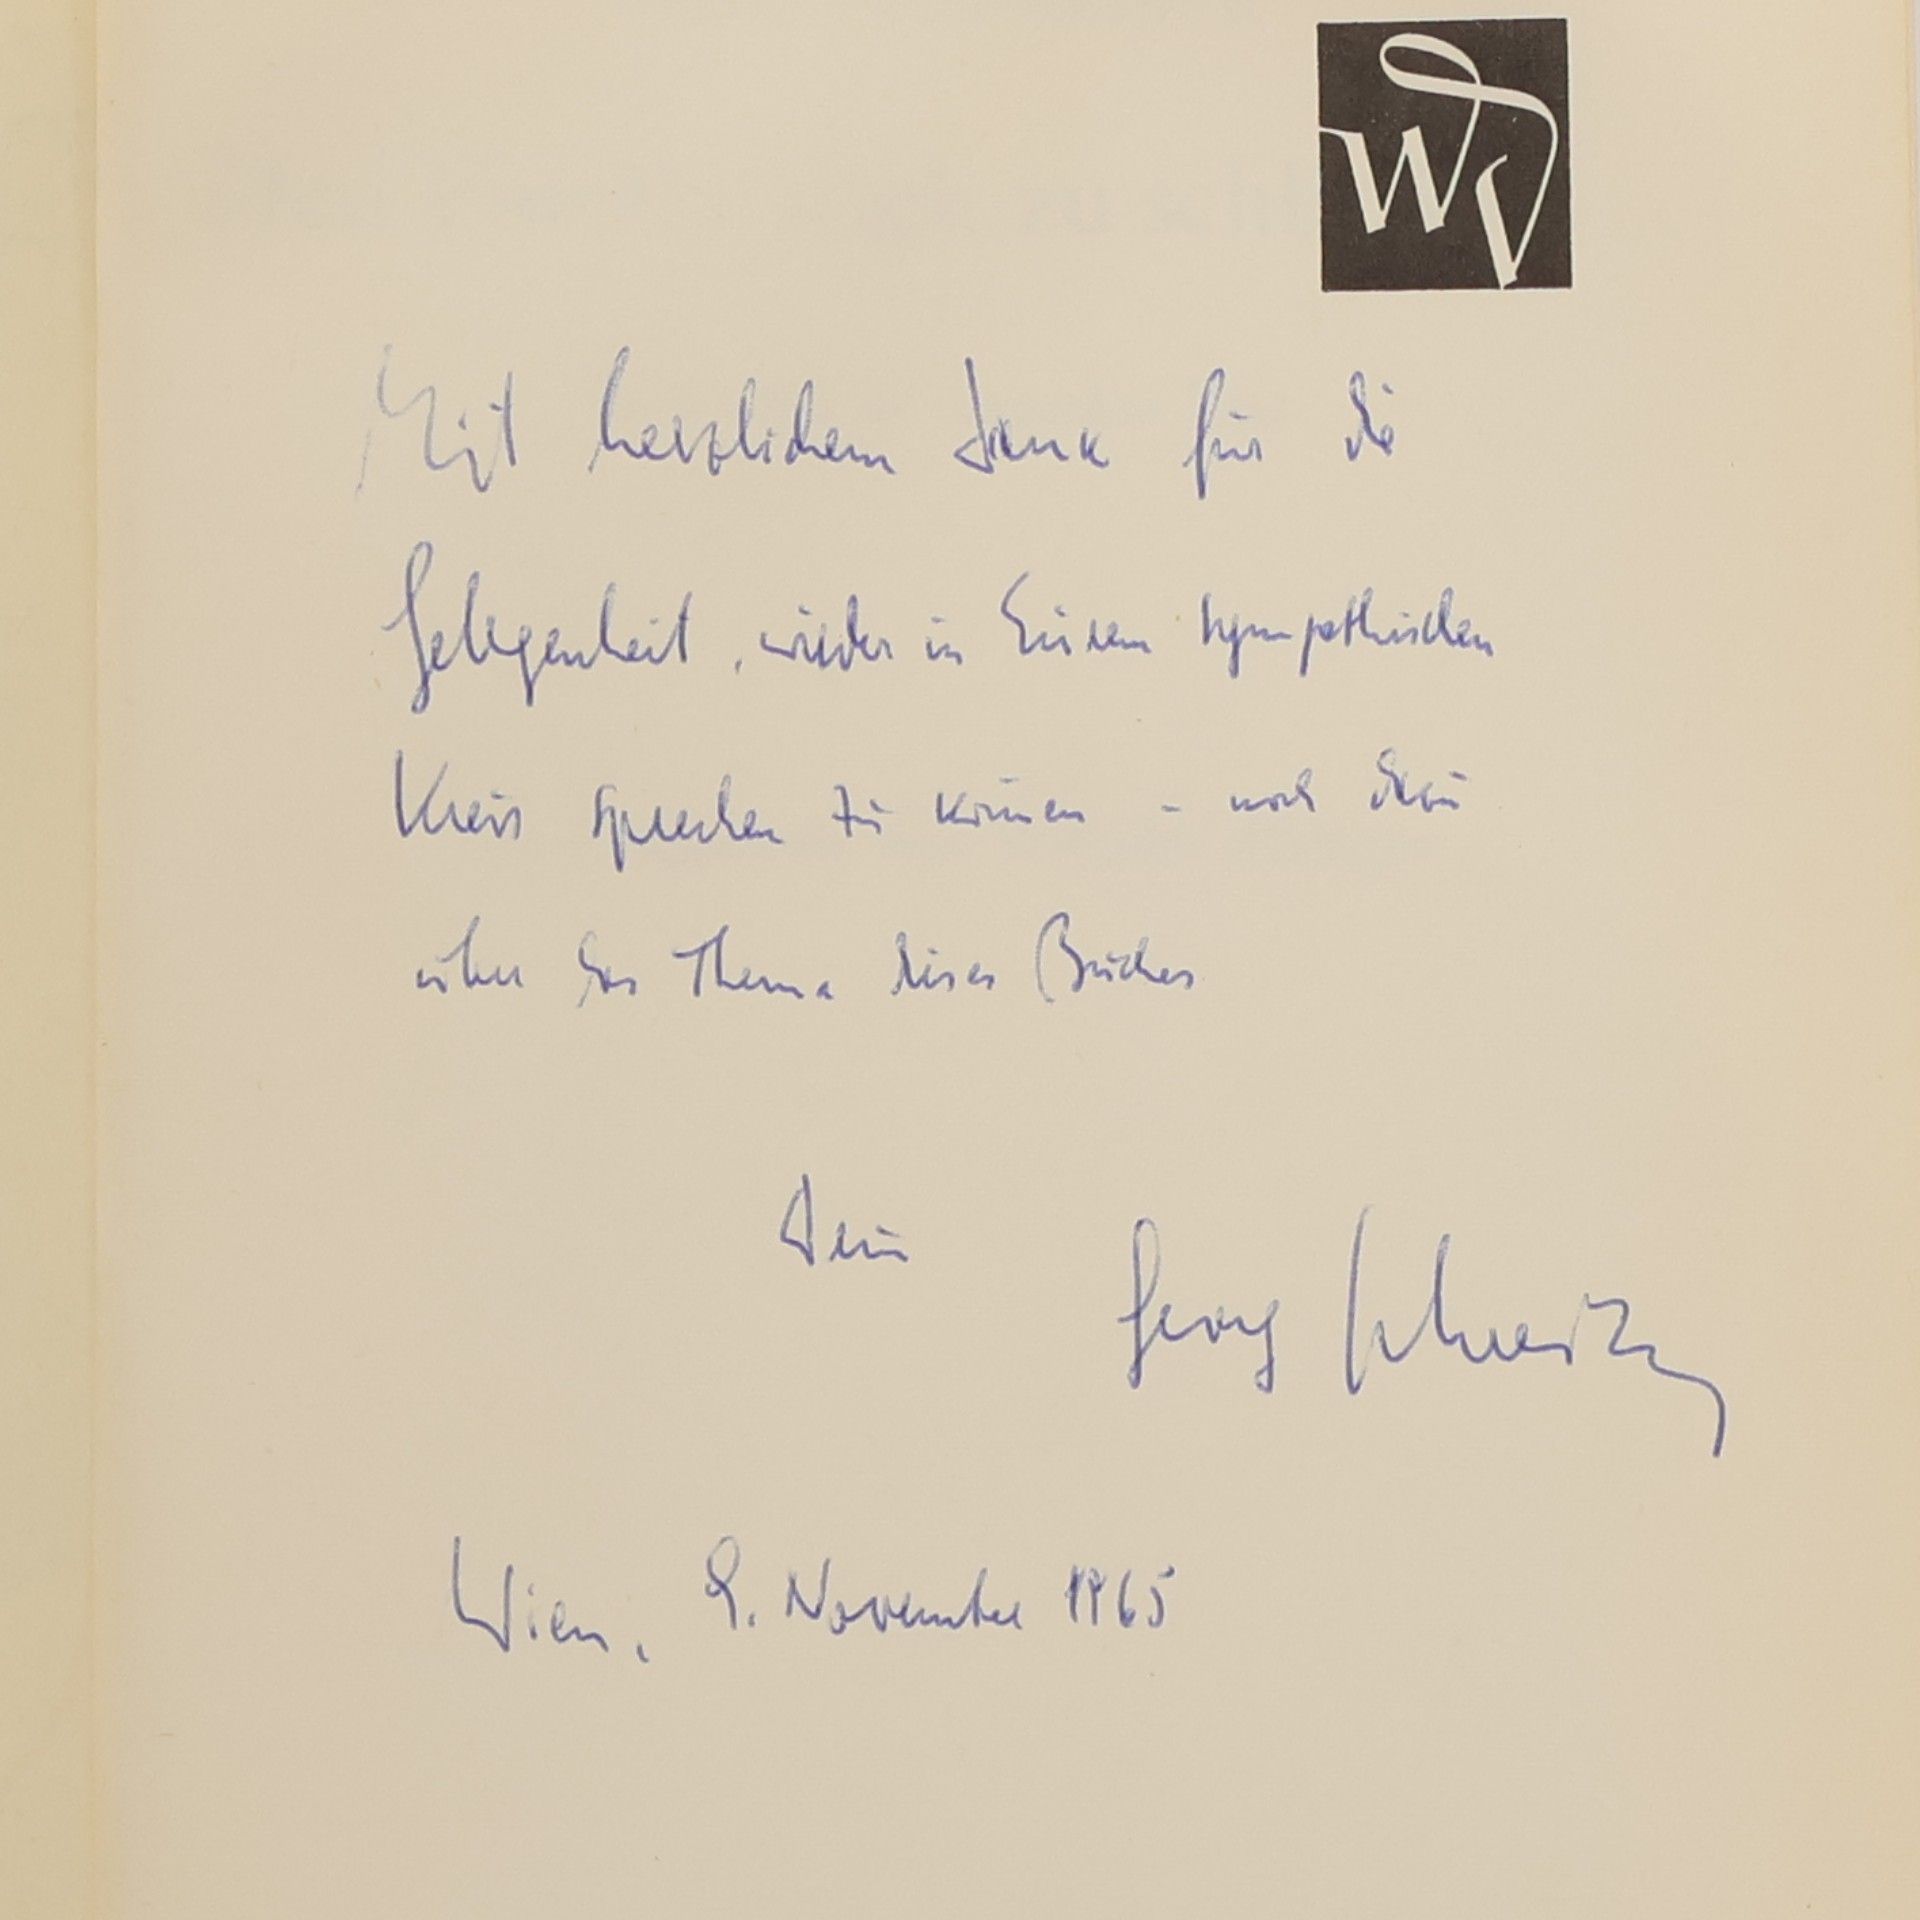 WV
Mit herzlichem Dank für die
Gelegenheit, wieder in Eurem sympathischen
Kreis sprechen zu können - noch dazu
über das Thema dieses Buches
Dein Georg Schreiber
Wien, 9. November 1965